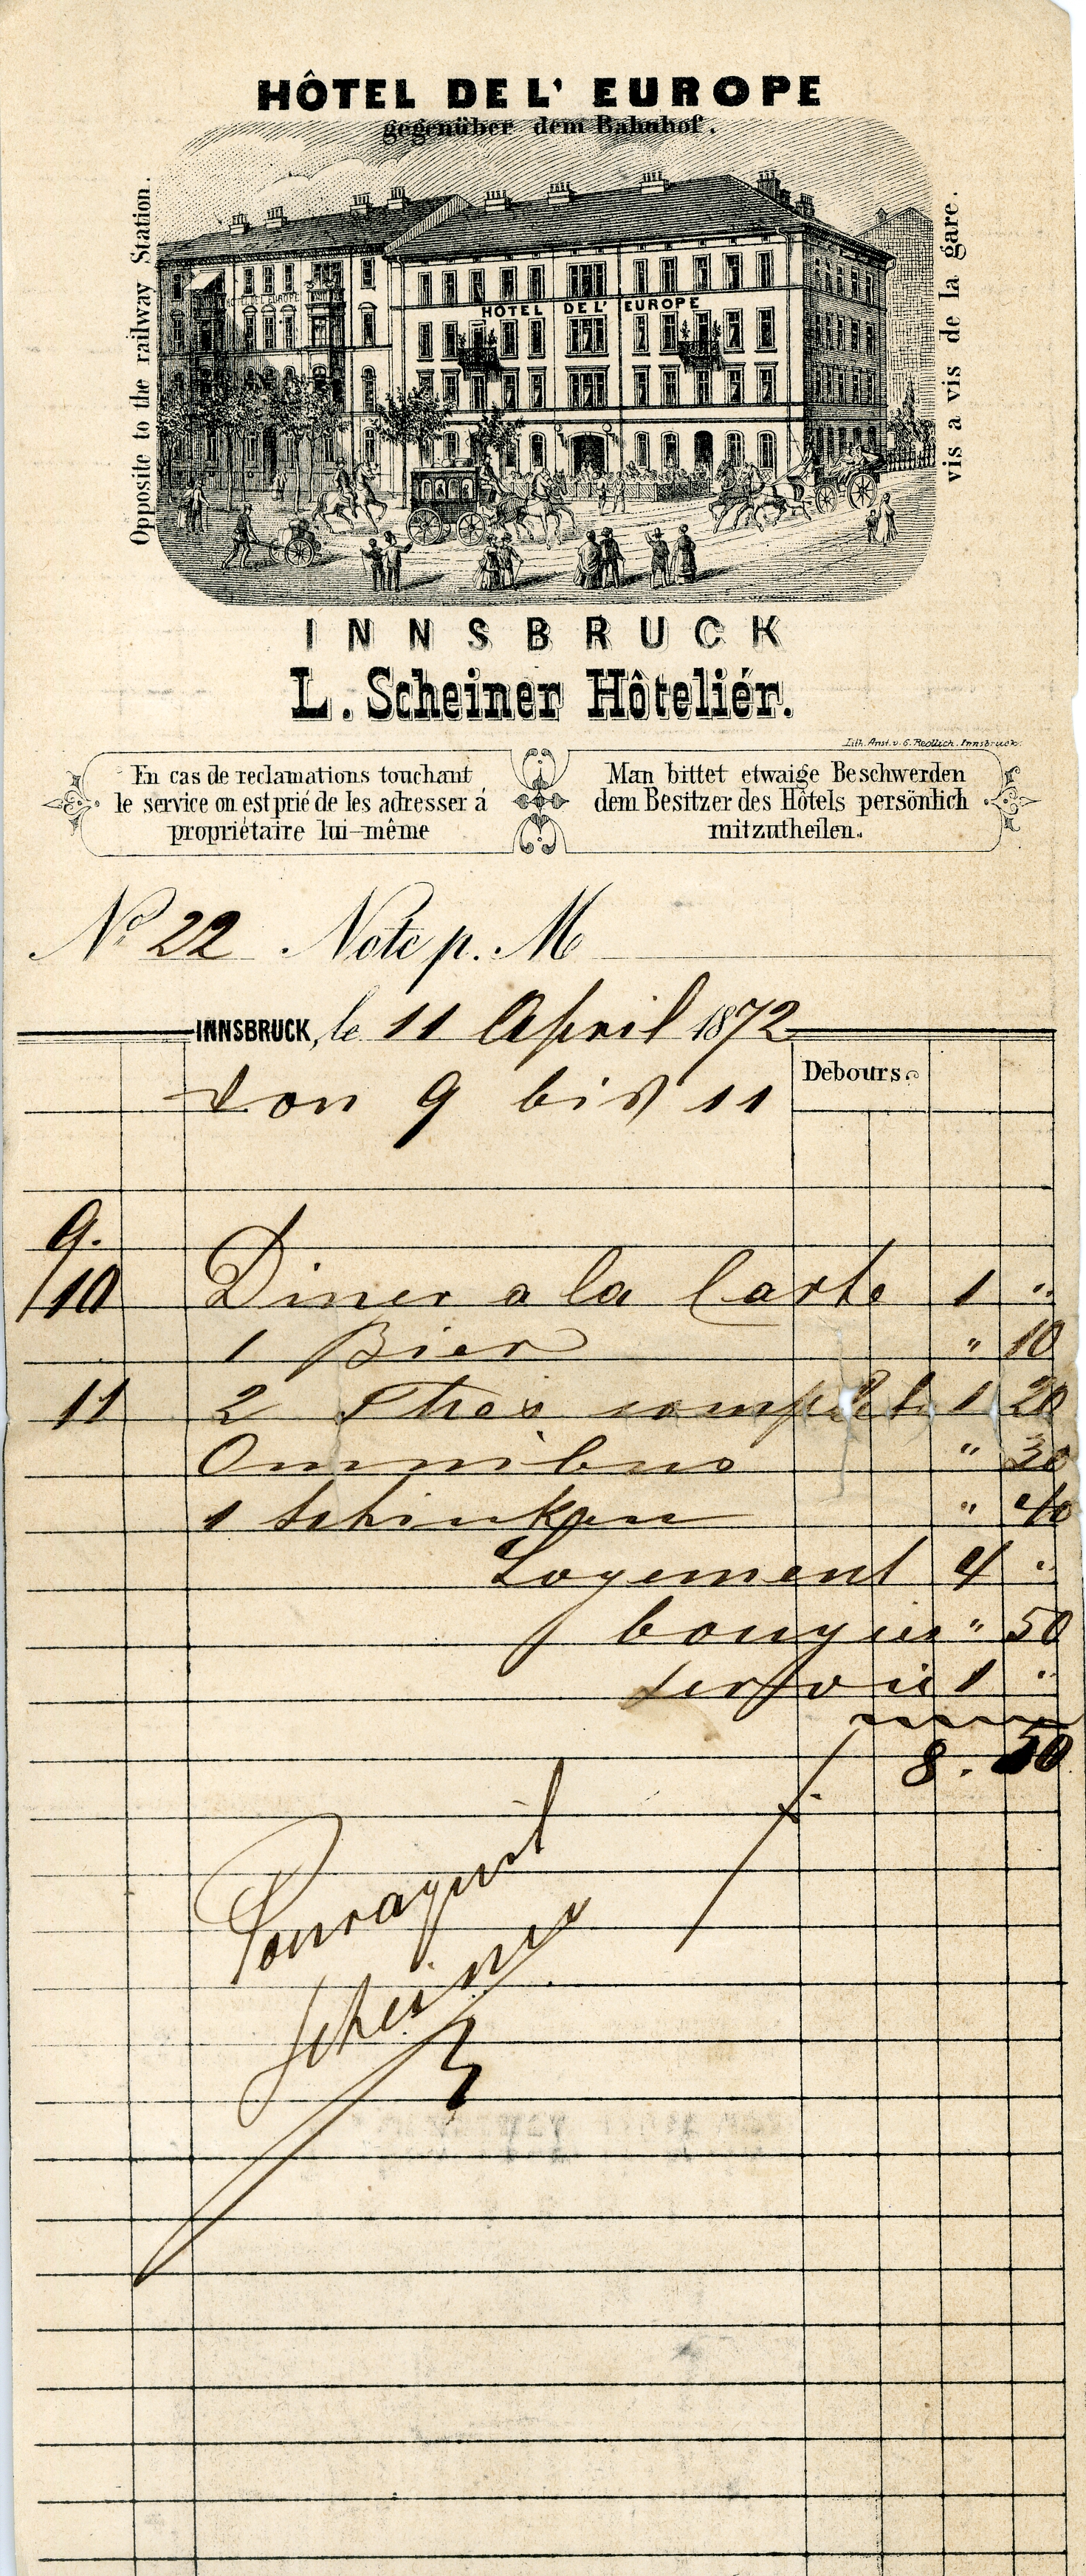 HÔTEL DE L' EUROPE
gegenüber dem Bahnhof.
Opposite to the railway Station.
vis a vis de la gare.
HOTEL DE L'EUROPE
HOTEL DE L' EUROPE
INNSBRUCK
L. Scheiner Hôteliér.
Lith. Anst. v. C. Redlich. Innsbruck.
En cas de reclamations touchant
le service on est prié de les adresser á
propriétaire lui-même
Man bittet etwaige Beschwerden
dem Besitzer des Hôtels persönlich
mitzutheilen.
No. 22 Note p. M
INNSBRUCK, le 11 April 1872
Debours
von 9 bis 11
9.
10 Diner a la Carte 1 "
1 Bier " 10
11 2 Thes complets 1 20
Omnibus " 30
1 Schinken " 40
Logement 4 "
bougies " 50
servoie 1 "
f. 8. 50
Scheiner